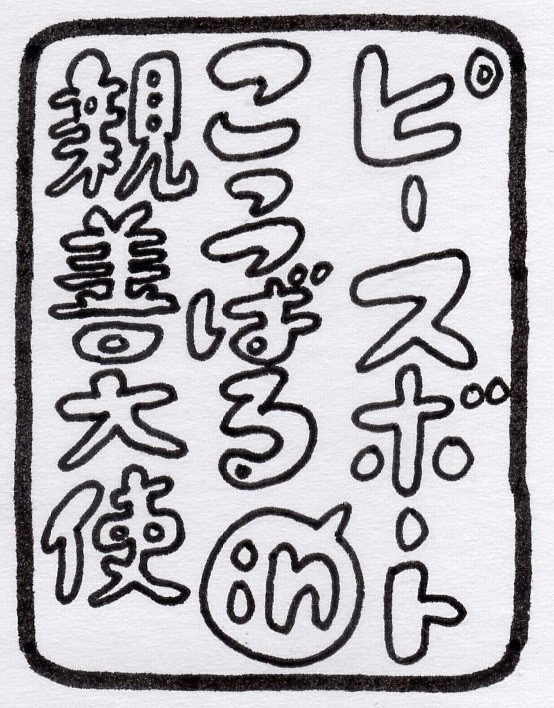 ピースボート
こつっばる in
親善大使